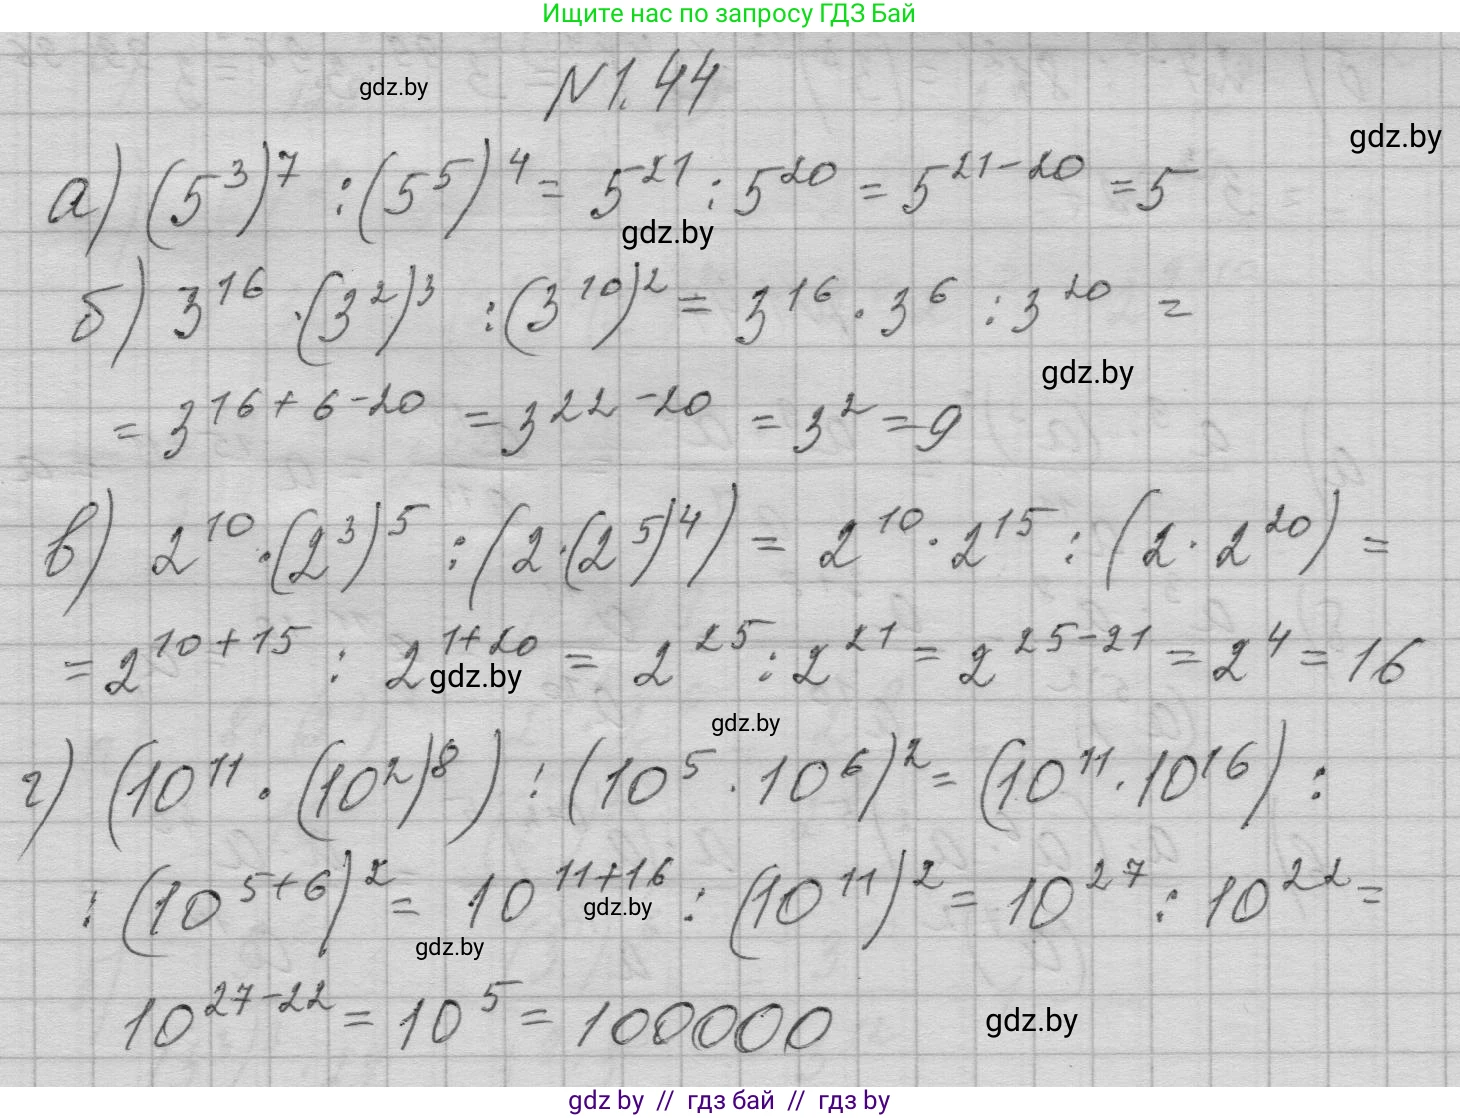 Ищите нас по запросу ГДЗ Бай
№1.44
gdz.by
gdz.by
а) (5³)⁷ : (5⁵)⁴ = 5²¹ : 5²⁰ = 5²¹⁻²⁰ = 5
gdz.by
б) 3¹⁶ · (3²)³ : (3¹⁰)² = 3¹⁶ · 3⁶ : 3²⁰ =
gdz.by
= 3¹⁶⁺⁶⁻²⁰ = 3²²⁻²⁰ = 3² = 9
в) 2¹⁰ · (2³)⁵ : (2 · (2⁵)⁴) = 2¹⁰ · 2¹⁵ : (2 · 2²⁰) =
= 2¹⁰⁺¹⁵ : 2¹⁺²⁰ = 2²⁵ : 2²¹ = 2²⁵⁻²¹ = 2⁴ = 16
gdz.by
gdz.by
г) (10¹¹ · (10²)⁸) : (10⁵ · 10⁶)² = (10¹¹ · 10¹⁶) :
: (10⁵⁺⁶)² = 10¹¹⁺¹⁶ : (10¹¹)² = 10²⁷ : 10²² =
gdz.by
gdz.by
10²⁷⁻²² = 10⁵ = 100000
gdz.by
gdz by // гдз бай // гдз by